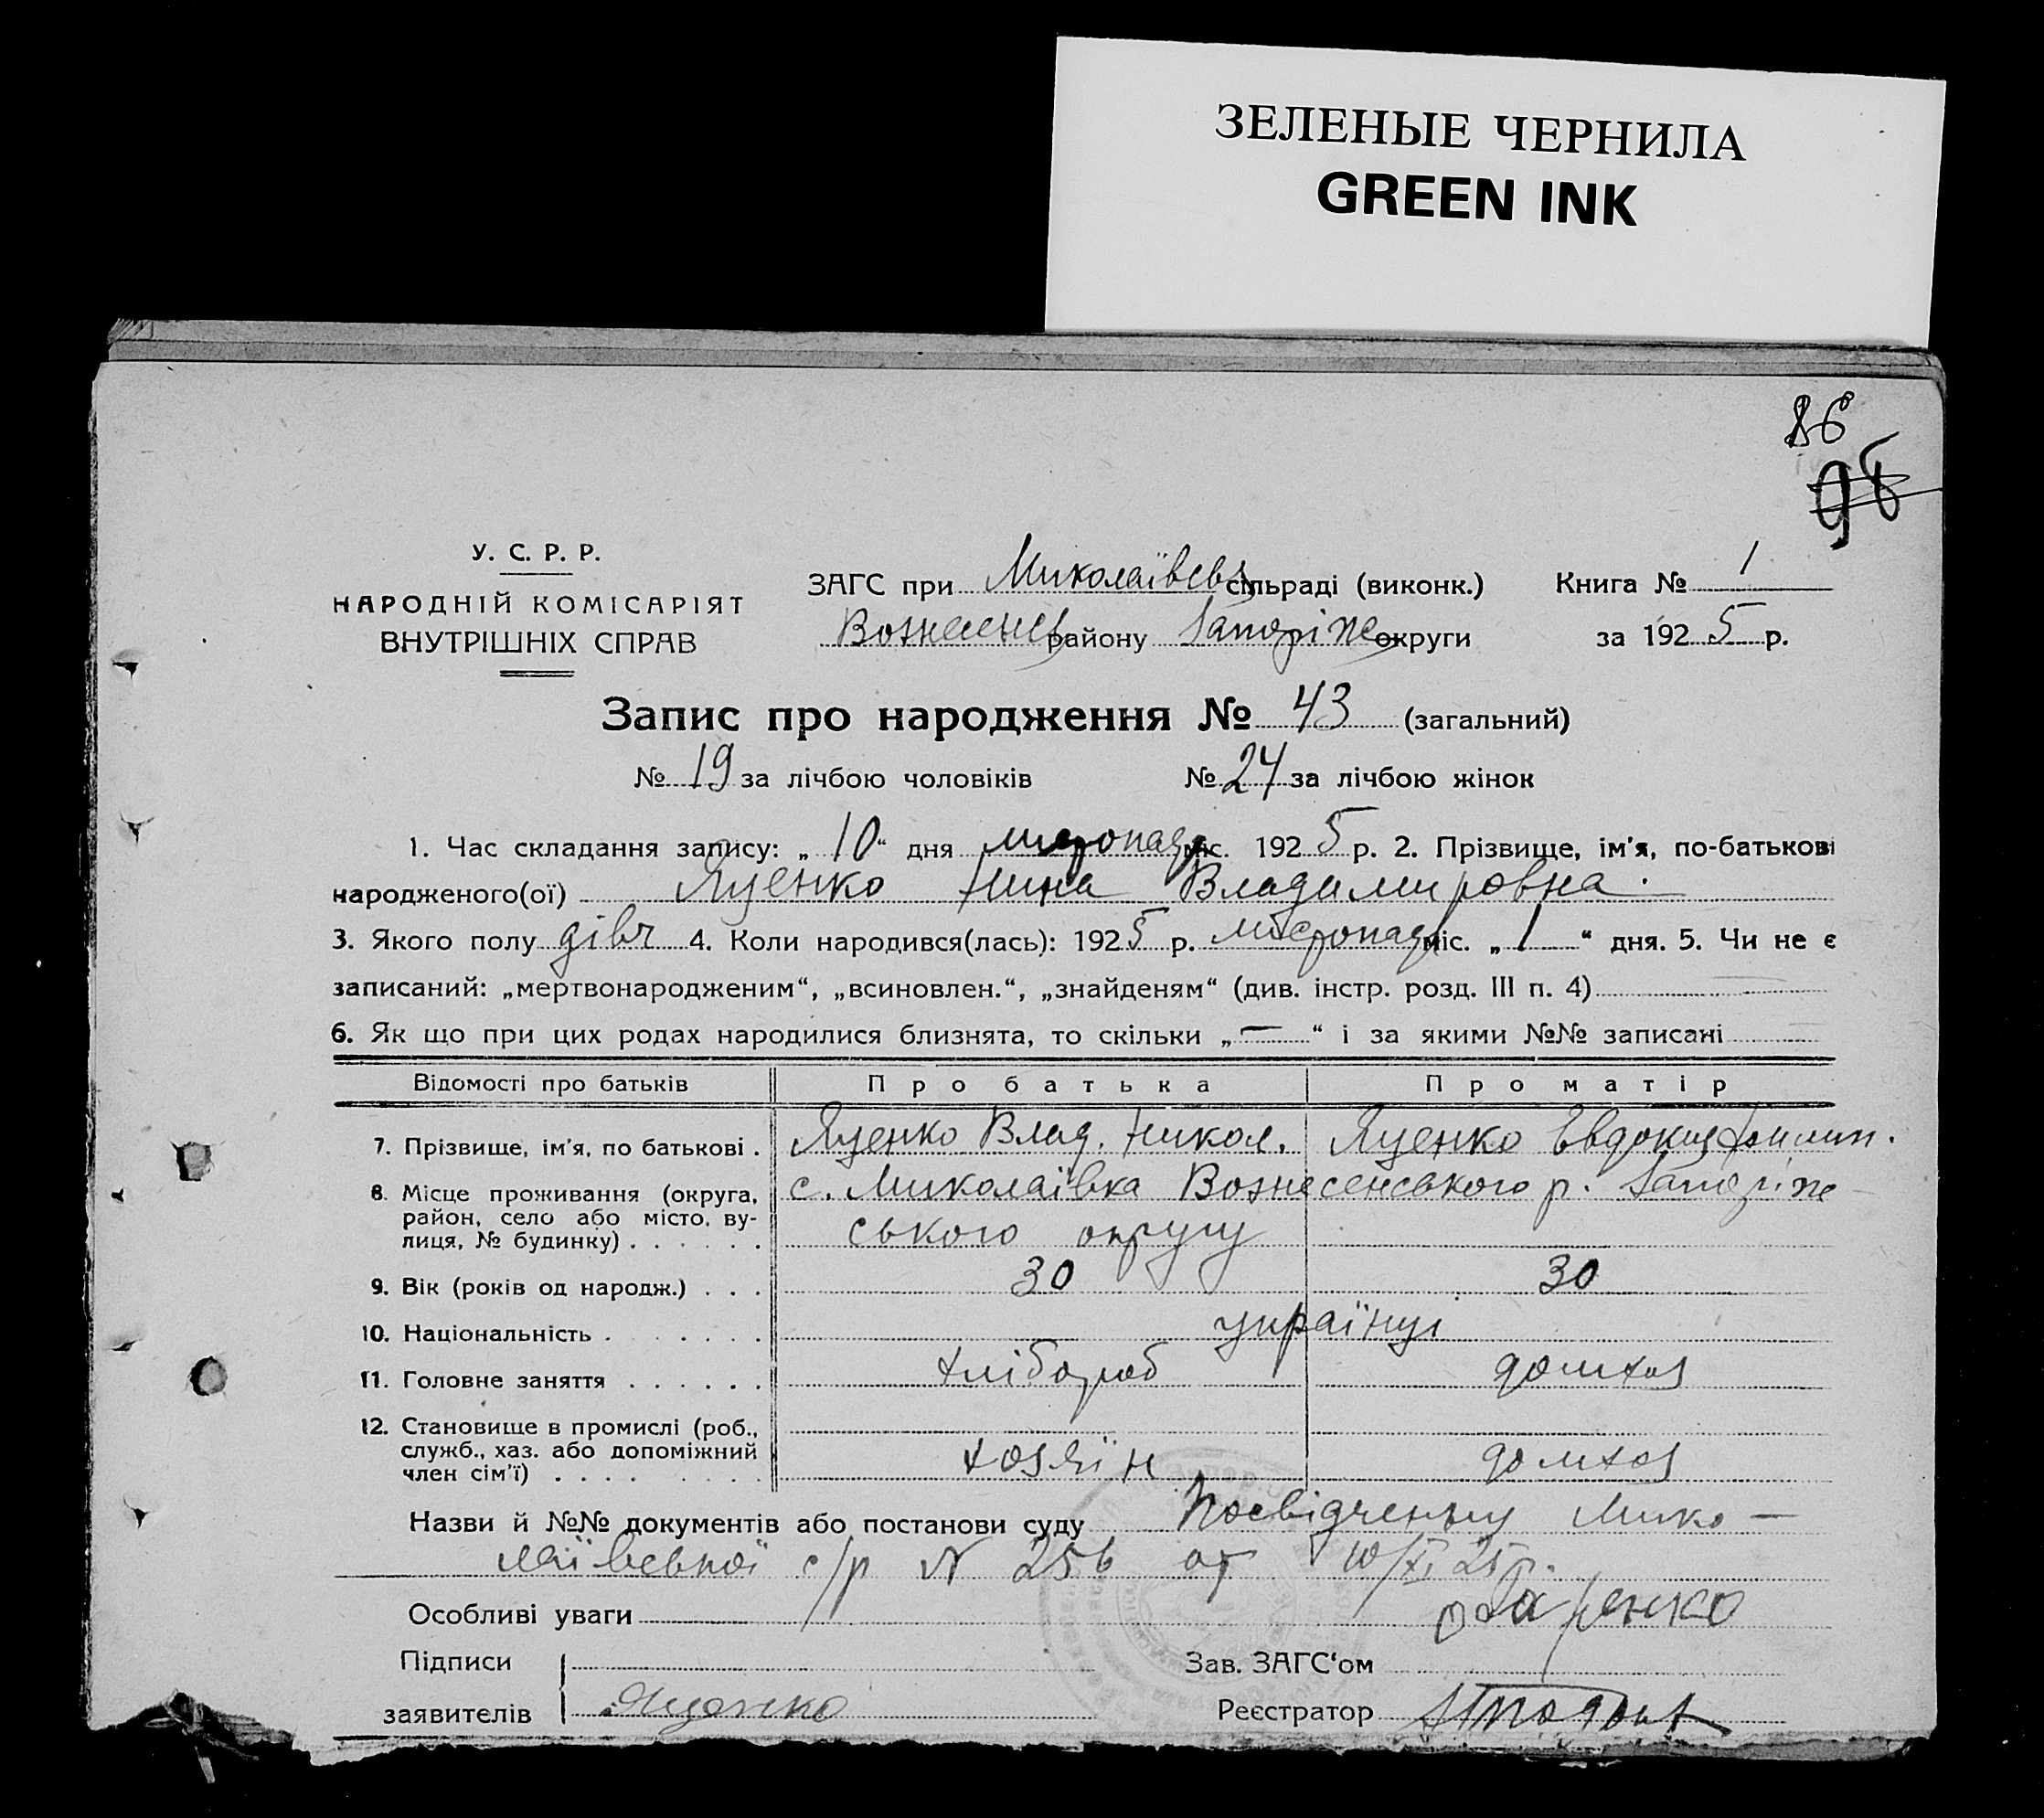 ЗЕЛЕНЫЕ ЧЕРНИЛА
GREEN INK
86
98
У. С. Р. Р.
НАРОДНІЙ КОМІСАРІЯТ
ВНУТРІШНІХ СПРАВ
ЗАГС при Миколаївськ сільраді (виконк.) Книга № 1
Вознесенськ району Запоріж округи за 1925 р.
Запис про народження № 43 (загальний)
№ 19 за лічбою чоловіків № 24 за лічбою жінок
1. Час складання запису: „10“ дня листопада міс. 1925 р. 2. Прізвище, ім'я, по-батькові
народженого(ої) Яценко Нина Владимировна.
3. Якого полу дівч 4. Коли народився(лась): 1925 р. листопада міс. „1“ дня. 5. Чи не є
записаний: „мертвонародженим“, „всиновлен.“, „знайденям“ (див. інстр. розд. III п. 4)
6. Як що при цих родах народилися близнята, то скільки „—“ і за якими №№ записані
Відомості про батьків Про батька Про матір
7. Прізвище, ім'я, по батькові . Яценко Влад. Никол. Яценко Евдокия Филип.
8. Місце проживання (округа, район, село або місто, вулиця, № будинку) . . . . . . с. Миколаївка Вознесенського р. Запоріже-
ського округу
9. Вік (років од народж.) . . . 30 30
10. Національність . . . . . . . українці
11. Головне заняття . . . . . . хлібороб домхоз
12. Становище в промислі (роб.,
служб., хаз. або допоміжний
член сім'ї) . . . . . . . . хозяїн домхоз
Назви й №№ документів або постанови суду Посвідченьня Мико-
лаївської с/р № 256 от 10/XI 25р.
Особливі уваги
Підписи Зав. ЗАГС'ом
заявителів Яценко Реєстратор